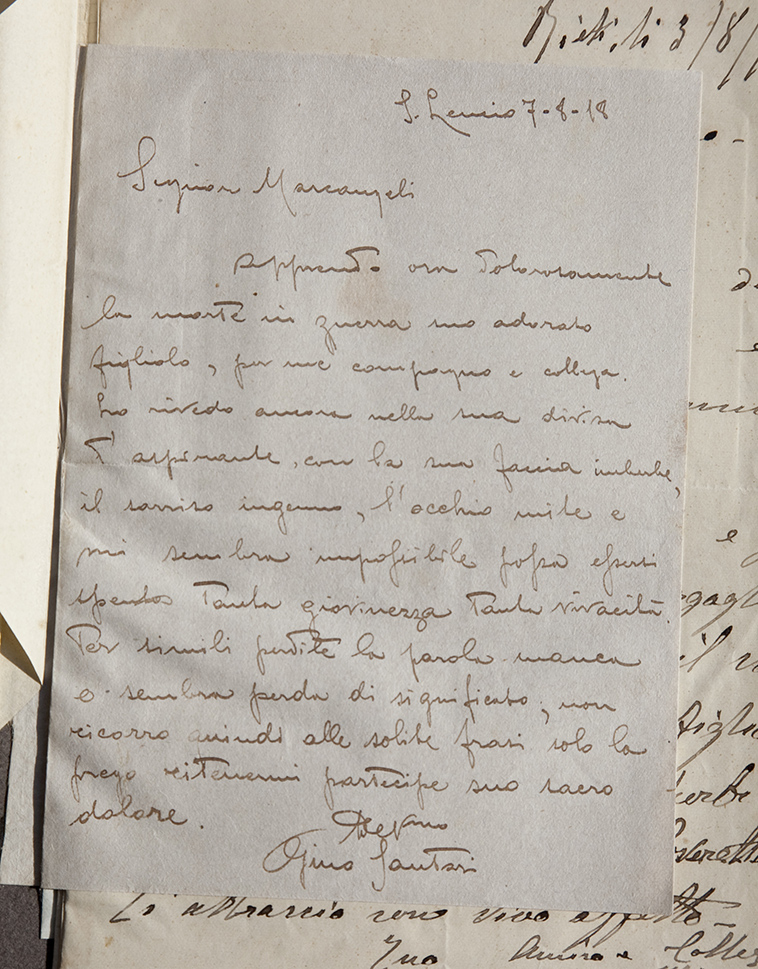 Rieti, li 3/8/
S. Leucio 7-8-18
Signor Marcangeli
Apprendo ora dolorosamente
la morte in guerra suo adorato
figliolo, per me compagno e collega.
Lo rivedo ancora nella sua divisa
d'aspirante, con la sua faccia imberbe,
il sorriso ingenuo, l'occhio mite e
mi sembra impossibile possa essersi
spenta tanta giovinezza tanta vivacità.
Per simili perdite la parola manca
o sembra perda di significato, non
ricorro quindi alle solite frasi solo la
prego ritenermi partecipe suo sacro
dolore.
Dev.mo
Gino Santori
Ti abbraccio con vivo affetto
Tuo Amico e